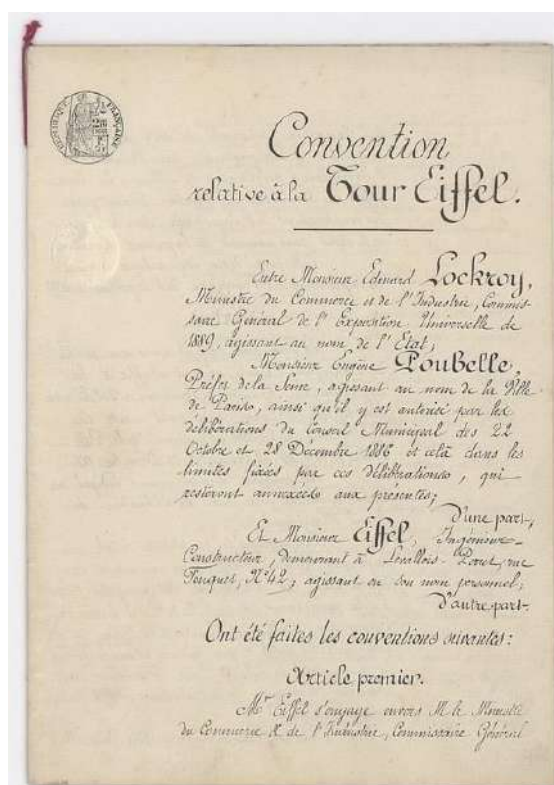 RÉPUBLIQUE FRANÇAISE
Convention
relative à la Tour Eiffel.
Entre Monsieur Edouard Lockroy,
Ministre du Commerce et de l'Industrie, Commis-
saire Général de l'Exposition Universelle de
1889, agissant au nom de l'Etat;
Monsieur Eugène Poubelle,
Préfet de la Seine, agissant au nom de la Ville
de Paris, ainsi qu'il y est autorisé par les
délibérations du Conseil Municipal des 22
Octobre et 28 Décembre 1886 et cela dans les
limites fixées par ces délibérations, qui
resteront annexées aux présentes;
D'une part;
Et Monsieur Eiffel, Ingénieur-
Constructeur, demeurant à Levallois-Perret, rue
Fouquet, N° 42; agissant en son nom personnel;
D'autre part.
Ont été faites les conventions suivantes:
Article premier.
Mr Eiffel s'engage envers M. le Ministre
du Commerce & de l'Industrie, Commissaire Général